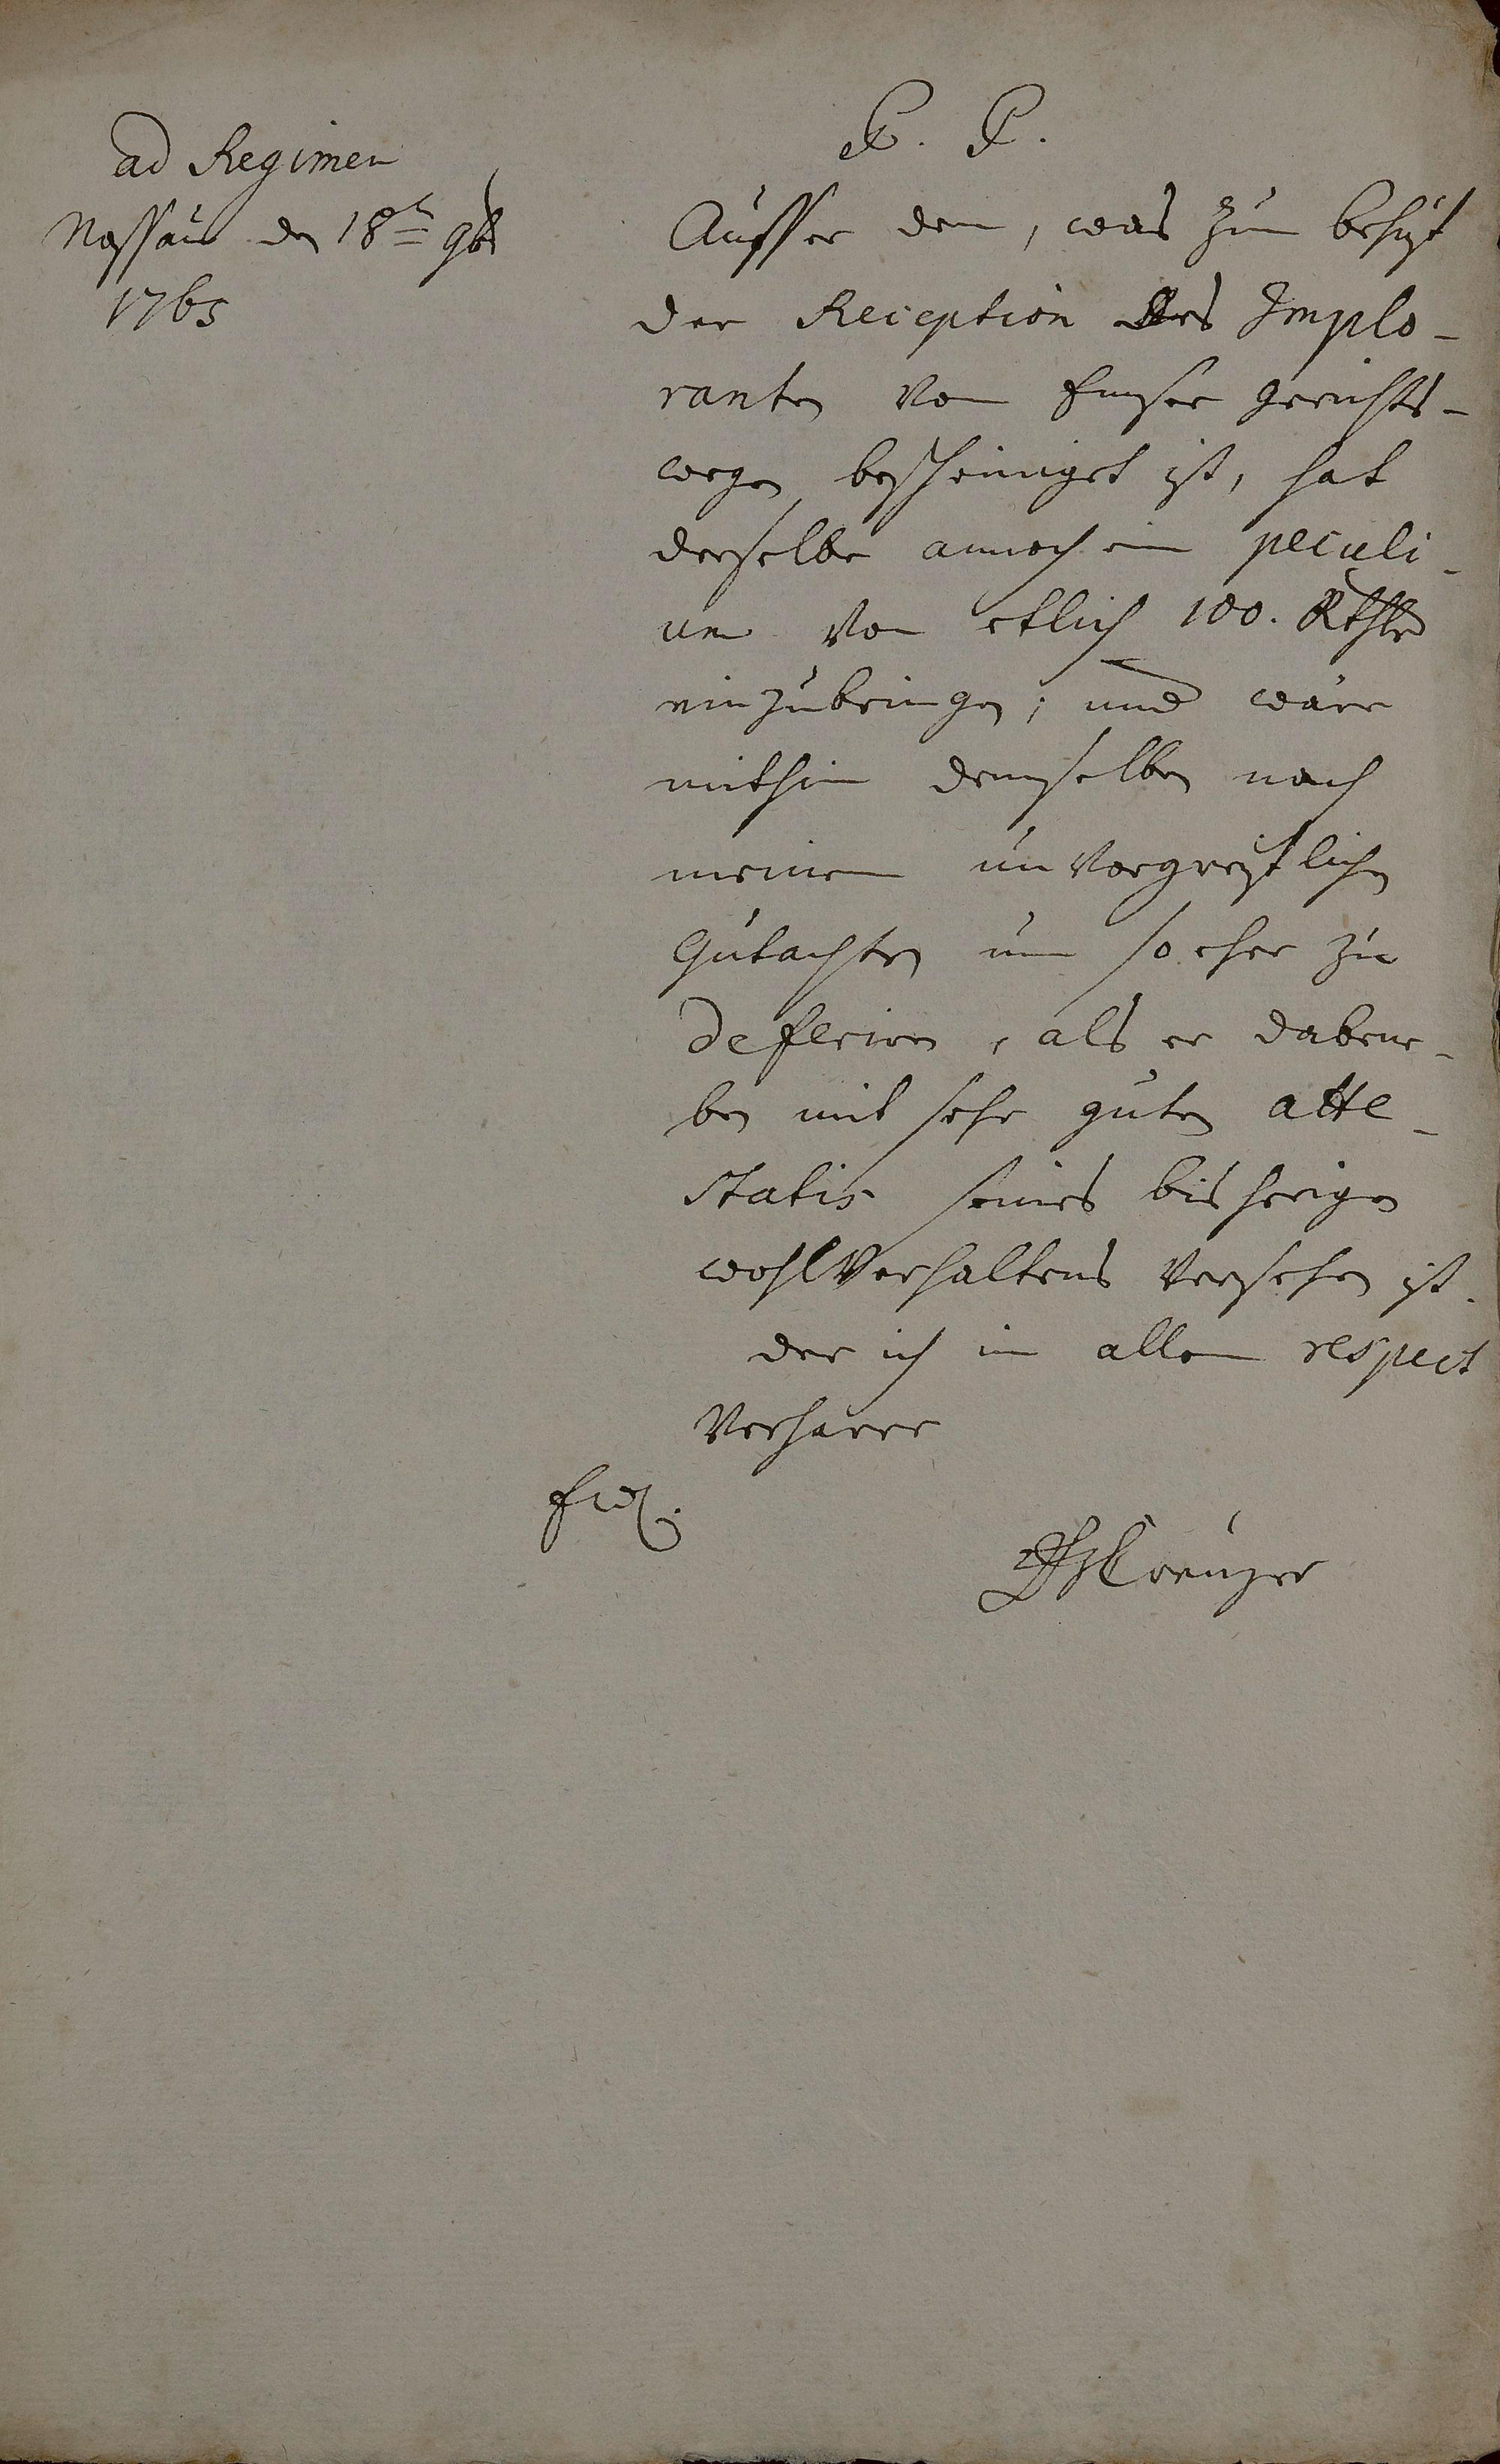 ad Regimen
Nassau den 18ten 9br
1765
P. P.
Ausser dem, was zum behuf
der Reception des Implo-
ranten von Emser gerichts-
wegen bescheiniget ist, hat
derselbe annoch ein peculi-
um von etlich 100. Rthlr
einzubringen; und wäre
mithin demselben nach
meinem unvorgreiflichen
Gutachten um so eher zu
deferiren, als er dabene-
ben mit sehr guten atte-
statis seines bisherigen
wohlverhaltens versehen ist.
der ich in allem respect
verharre
Creuzer